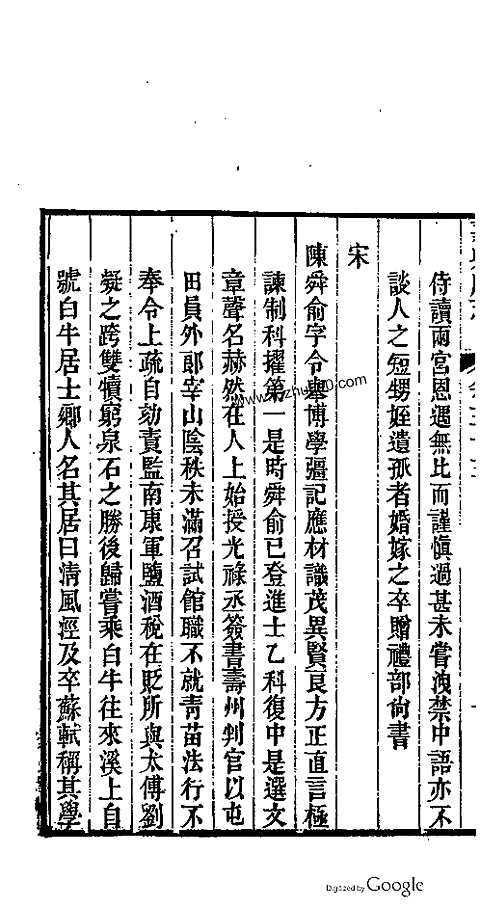 侍讀兩宮恩遇無比而謹慎過甚未嘗洩禁中語亦不
談人之短甥姪遺孤者婚嫁之卒贈禮部尙書
宋
陳舜俞字令舉博學彊記應材識茂異賢良方正直言極
諫制科擢第一是時舜俞已登進士乙科復中是選文
章聲名赫然在人上始授光祿丞簽書壽州判官以屯
田員外郞宰山陰秩未滿召試館職不就靑苗法行不
奉令上疏自劾責監南康軍鹽酒稅在貶所與太傅劉
凝之跨雙犢窮泉石之勝後歸嘗乘白牛往來溪上自
號白牛居士鄕人名其居曰淸風涇及卒蘇軾稱其學
Digitized by Google